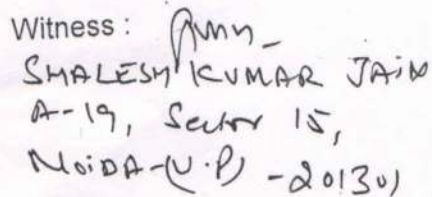 Witness :
SHALESH KUMAR JAIN
A-19, Sector 15,
NOIDA-(U.P) -201301